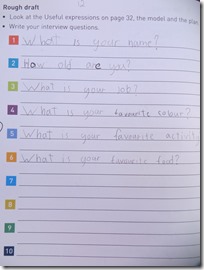 12
Rough draft
• Look at the Useful expressions on page 32, the model and the plan
• Write your interview questions.
1 What is your name?
2 How old are you?
3 What is your job?
4 What is your favourite colour?
5 What is your favourite activit
6 What is your favourite food?
7
8
9
10